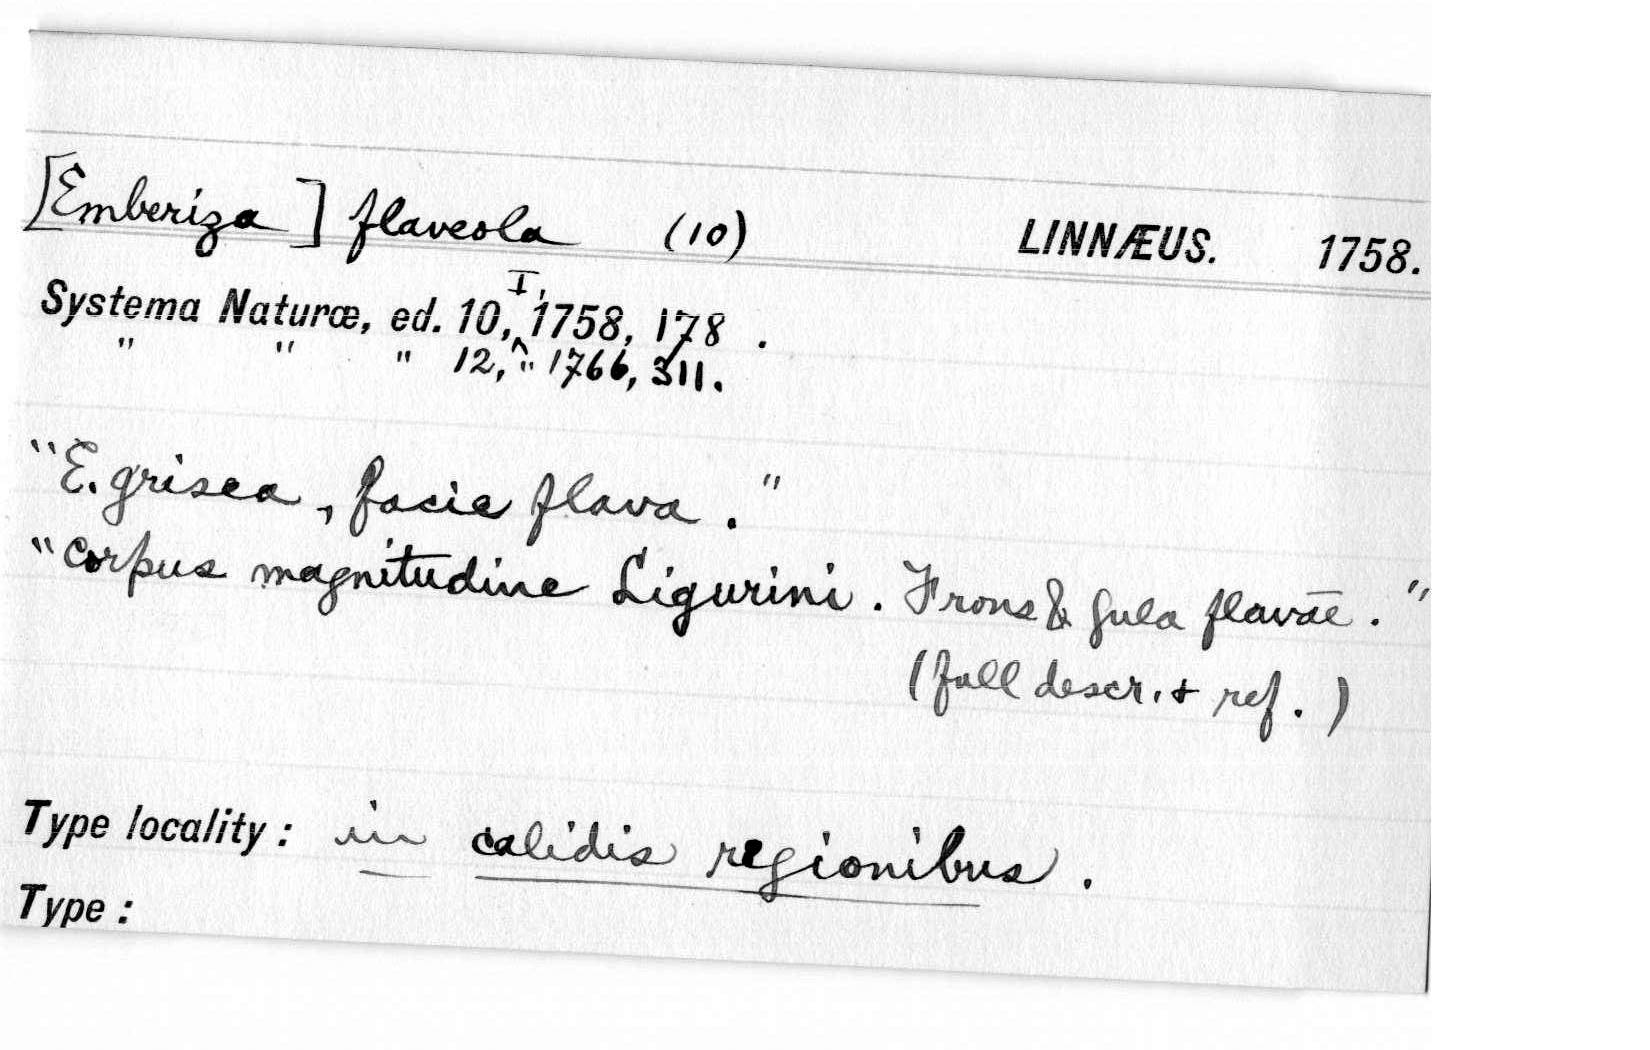 [Emberiza] flaveola (10) LINNÆUS. 1758.
Systema Naturæ, ed. 10, I, 1758, 178.
" " " 12, " 1766, 311.
"E. grisea, facie flava."
"Corpus magnitudine Ligurini. Frons & gula flavae."
(full descr. + ref.)
Type locality: in calidis regionibus.
Type: